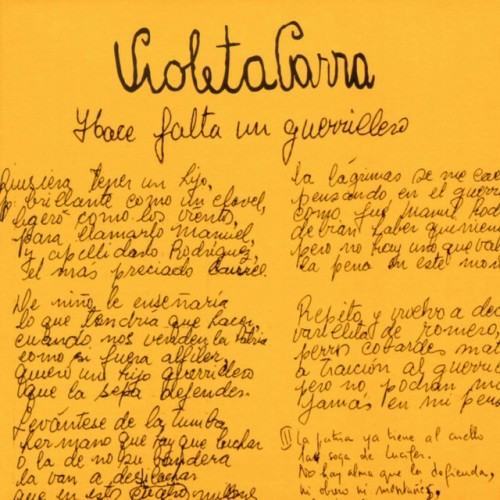 Violeta Parra
Hace falta un guerrillero
Quisiera tener un hijo,
brillante como un clavel,
ligero como los vientos,
para llamarlo Manuel,
y apellidarlo Rodríguez,
el más preciado laurel.
De niño le enseñaría
lo que tendría que hacer,
cuando nos venden la Patria
como si fuera alfiler,
quiero un hijo guerrillero
que la sepa defender.
Levántese de la tumba
hermano que hay que luchar
o la de no su bandera
la van a
que en esto cuatro
La lágrimas se me cae
pensando en el guerri
como fue Manuel Rod
debían haber
pero no hay uno que val
la pena en este mom
Repito y vuelvo a dec
varillita de romero,
perros cobardes mat
a traición al guerri
pero no podrán m
jamás en mi pens
II La patria ya tiene al cuello
la soga de Lucifer.
No hay alma que la defienda,
ni obrero ni